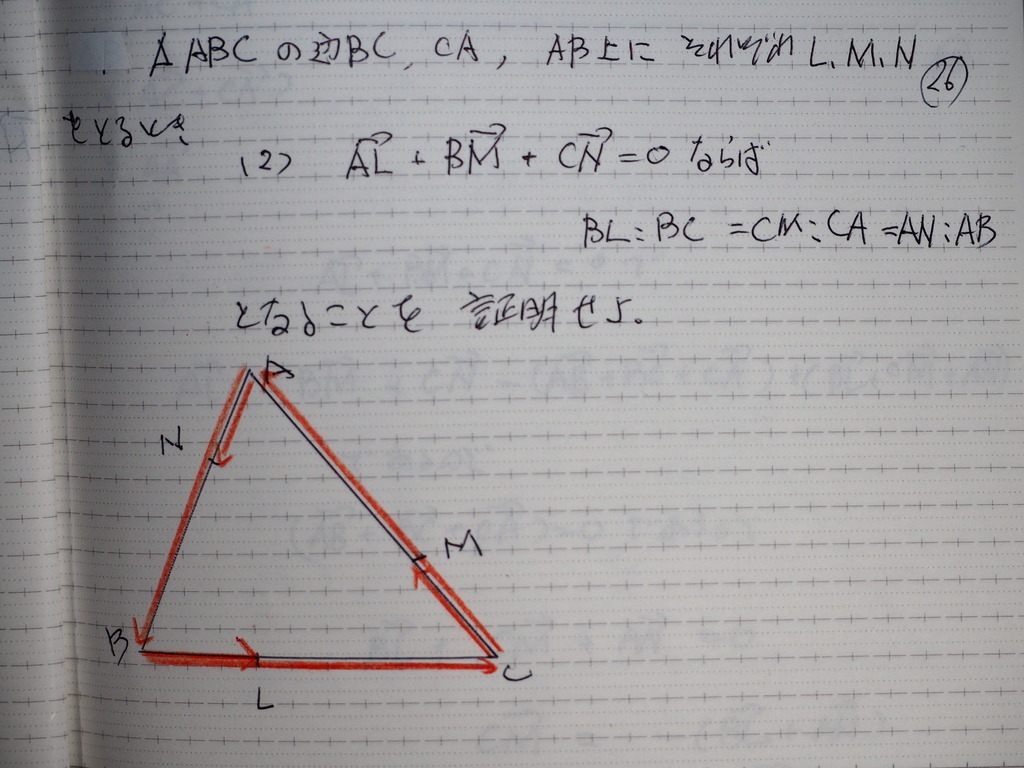 △ABCの辺BC, CA, AB上にそれぞれL, M, N
㉖
をとるとき
(2) AL + BM + CN = 0 ならば
BL : BC = CM : CA = AN : AB
となることを 証明せよ。
A
N
M
B
C
L